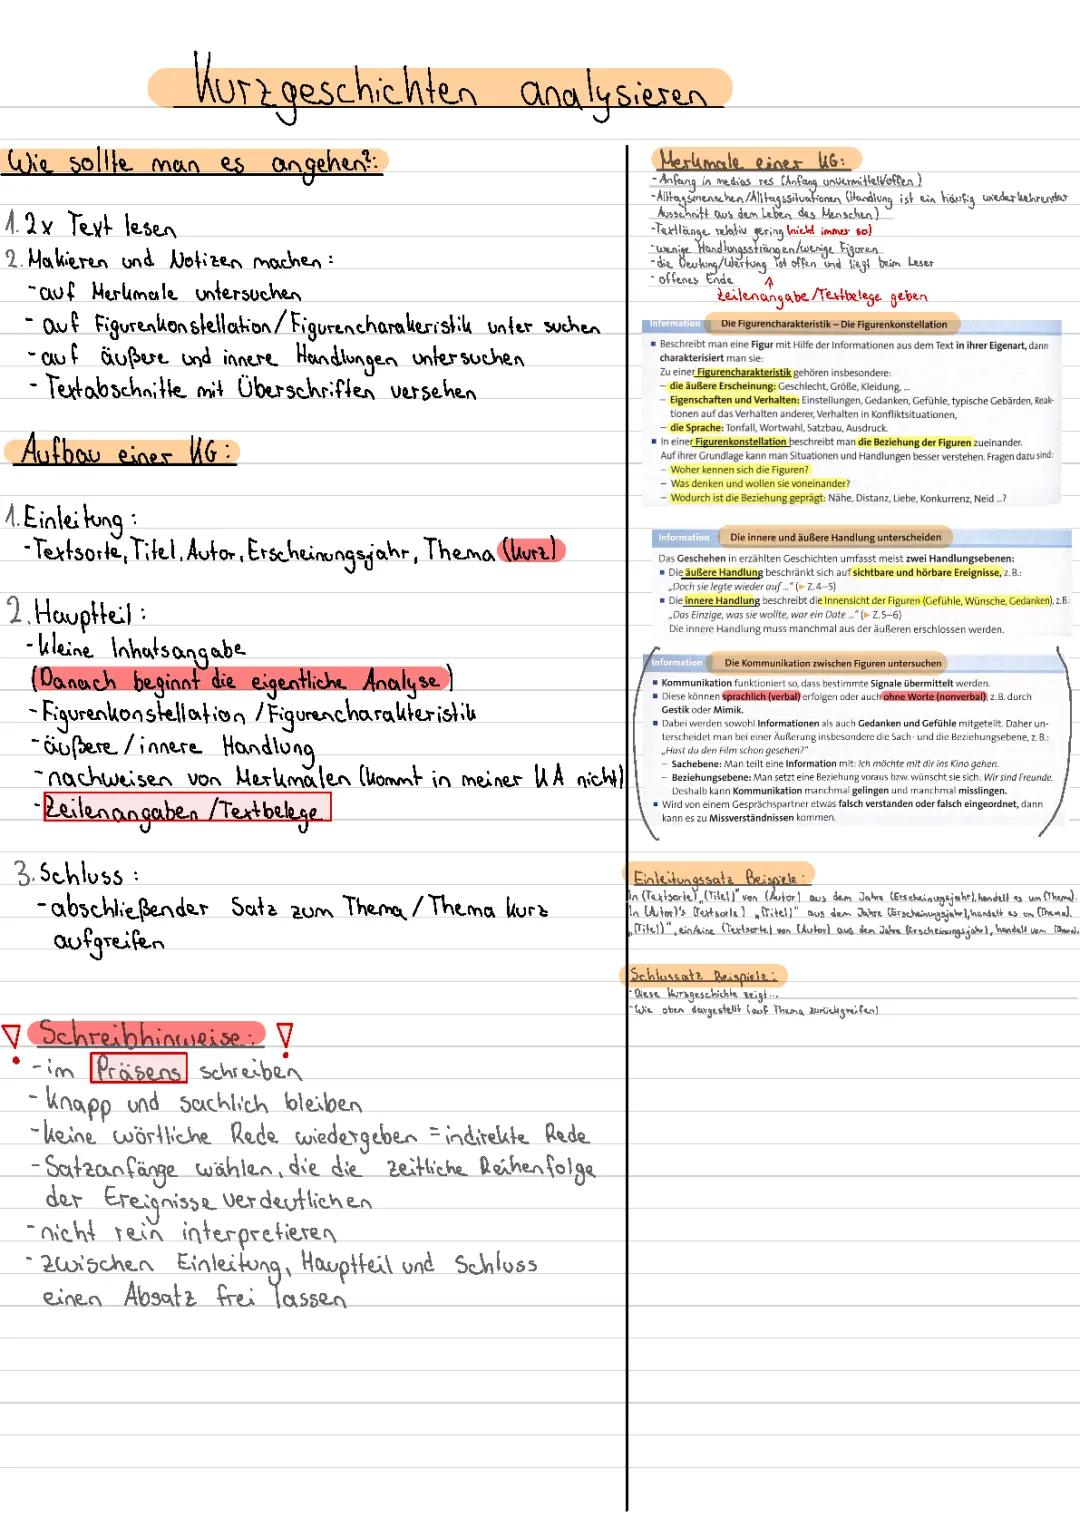 Kurzgeschichten analysieren
Wie sollte man es angehen?:
1. 2x Text lesen
2. Makieren und Notizen machen:
- auf Merkmale untersuchen
- auf Figurenkonstellation/Figurencharakeristik unter suchen
- auf äußere und innere Handlungen untersuchen
- Textabschnitte mit Überschriften versehen
Aufbau einer KG:
1. Einleitung:
- Textsorte, Titel, Autor, Erscheinungsjahr, Thema (kurz)
2. Hauptteil:
- kleine Inhatsangabe
(Danach beginnt die eigentliche Analyse)
- Figurenkonstellation / Figurencharakteristik
- äußere / innere Handlung
- nachweisen von Merkmalen (kommt in meiner KA nicht)
- Zeilenangaben / Textbelege
3. Schluss:
- abschließender Satz zum Thema / Thema kurz
aufgreifen
Schreibhinweise:
- im Präsens schreiben
- knapp und sachlich bleiben
- keine wörtliche Rede wiedergeben = indirekte Rede
- Satzanfänge wählen, die die zeitliche Reihenfolge
der Ereignisse verdeutlichen
- nicht rein interpretieren
- zwischen Einleitung, Hauptteil und Schluss
einen Absatz frei lassen
Merkmale einer KG:
- Anfang in medias res (Anfang unvermittelt/offen)
- Alltagsmenschen/Alltagssituationen (Handlung ist ein häufig wiederkehrender
Ausschnitt aus dem Leben des Menschen)
- Textlänge relativ gering (nicht immer so)
- wenige Handlungssträngen/wenige Figuren
- die Deutung/Wertung ist offen und liegt beim Leser
- offenes Ende
Zeilenangabe/Textbelege geben
Information Die Figurencharakteristik – Die Figurenkonstellation
▪ Beschreibt man eine Figur mit Hilfe der Informationen aus dem Text in ihrer Eigenart, dann
charakterisiert man sie:
Zu einer Figurencharakteristik gehören insbesondere:
– die äußere Erscheinung: Geschlecht, Größe, Kleidung, ...
– Eigenschaften und Verhalten: Einstellungen, Gedanken, Gefühle, typische Gebärden, Reak-
tionen auf das Verhalten anderer, Verhalten in Konfliktsituationen,
– die Sprache: Tonfall, Wortwahl, Satzbau, Ausdruck.
▪ In einer Figurenkonstellation beschreibt man die Beziehung der Figuren zueinander.
Auf ihrer Grundlage kann man Situationen und Handlungen besser verstehen. Fragen dazu sind:
– Woher kennen sich die Figuren?
– Was denken und wollen sie voneinander?
– Wodurch ist die Beziehung geprägt: Nähe, Distanz, Liebe, Konkurrenz, Neid ...?
Information Die innere und äußere Handlung unterscheiden
Das Geschehen in erzählten Geschichten umfasst meist zwei Handlungsebenen:
▪ Die äußere Handlung beschränkt sich auf sichtbare und hörbare Ereignisse, z. B.:
„Doch sie legte wieder auf ..." (▸ Z. 4–5)
▪ Die innere Handlung beschreibt die Innensicht der Figuren (Gefühle, Wünsche, Gedanken), z. B.:
„Das Einzige, was sie wollte, war ein Date ..." (▸ Z. 5–6)
Die innere Handlung muss manchmal aus der äußeren erschlossen werden.
Information Die Kommunikation zwischen Figuren untersuchen
▪ Kommunikation funktioniert so, dass bestimmte Signale übermittelt werden.
▪ Diese können sprachlich (verbal) erfolgen oder auch ohne Worte (nonverbal), z. B. durch
Gestik oder Mimik.
▪ Dabei werden sowohl Informationen als auch Gedanken und Gefühle mitgeteilt. Daher un-
terscheidet man bei einer Äußerung insbesondere die Sach- und die Beziehungsebene, z. B.:
„Hast du den Film schon gesehen?"
– Sachebene: Man teilt eine Information mit: Ich möchte mit dir ins Kino gehen.
– Beziehungsebene: Man setzt eine Beziehung voraus bzw. wünscht sie sich: Wir sind Freunde.
Deshalb kann Kommunikation manchmal gelingen und manchmal misslingen.
▪ Wird von einem Gesprächspartner etwas falsch verstanden oder falsch eingeordnet, dann
kann es zu Missverständnissen kommen.
Einleitungssatz Beispiele:
In (Textsorte) „(Titel)" von (Autor) aus dem Jahre (Erscheinungsjahr), handelt es um (Thema).
In (Autor)'s (Textsorte) „(Titel)" aus dem Jahre (Erscheinungsjahr), handelt es um (Thema).
„(Titel)", ein/eine (Textsorte) von (Autor) aus dem Jahre (Erscheinungsjahr), handelt vom (Thema).
Schlussatz Beispiele:
- Diese Kurzgeschichte zeigt...
- Wie oben dargestellt (auf Thema zurückgreifen)